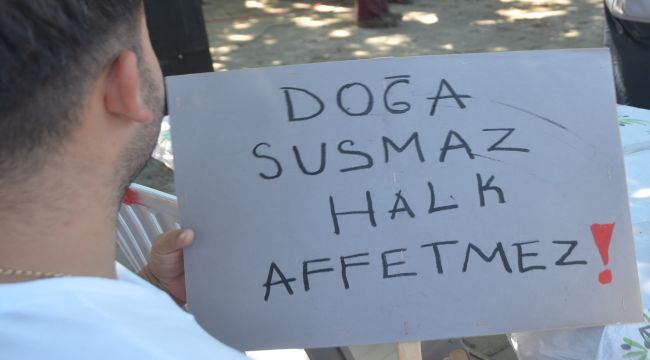 DOĞA
SUSMAZ
HALK
AFFETMEZ!